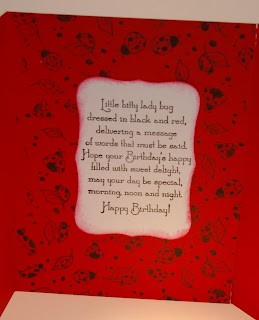 Little bitty lady bug
dressed in black and red,
delivering a message
of words that must be said.
Hope your Birthday's happy
filled with sweet delight,
may your day be special,
morning, noon and night.
Happy Birthday!